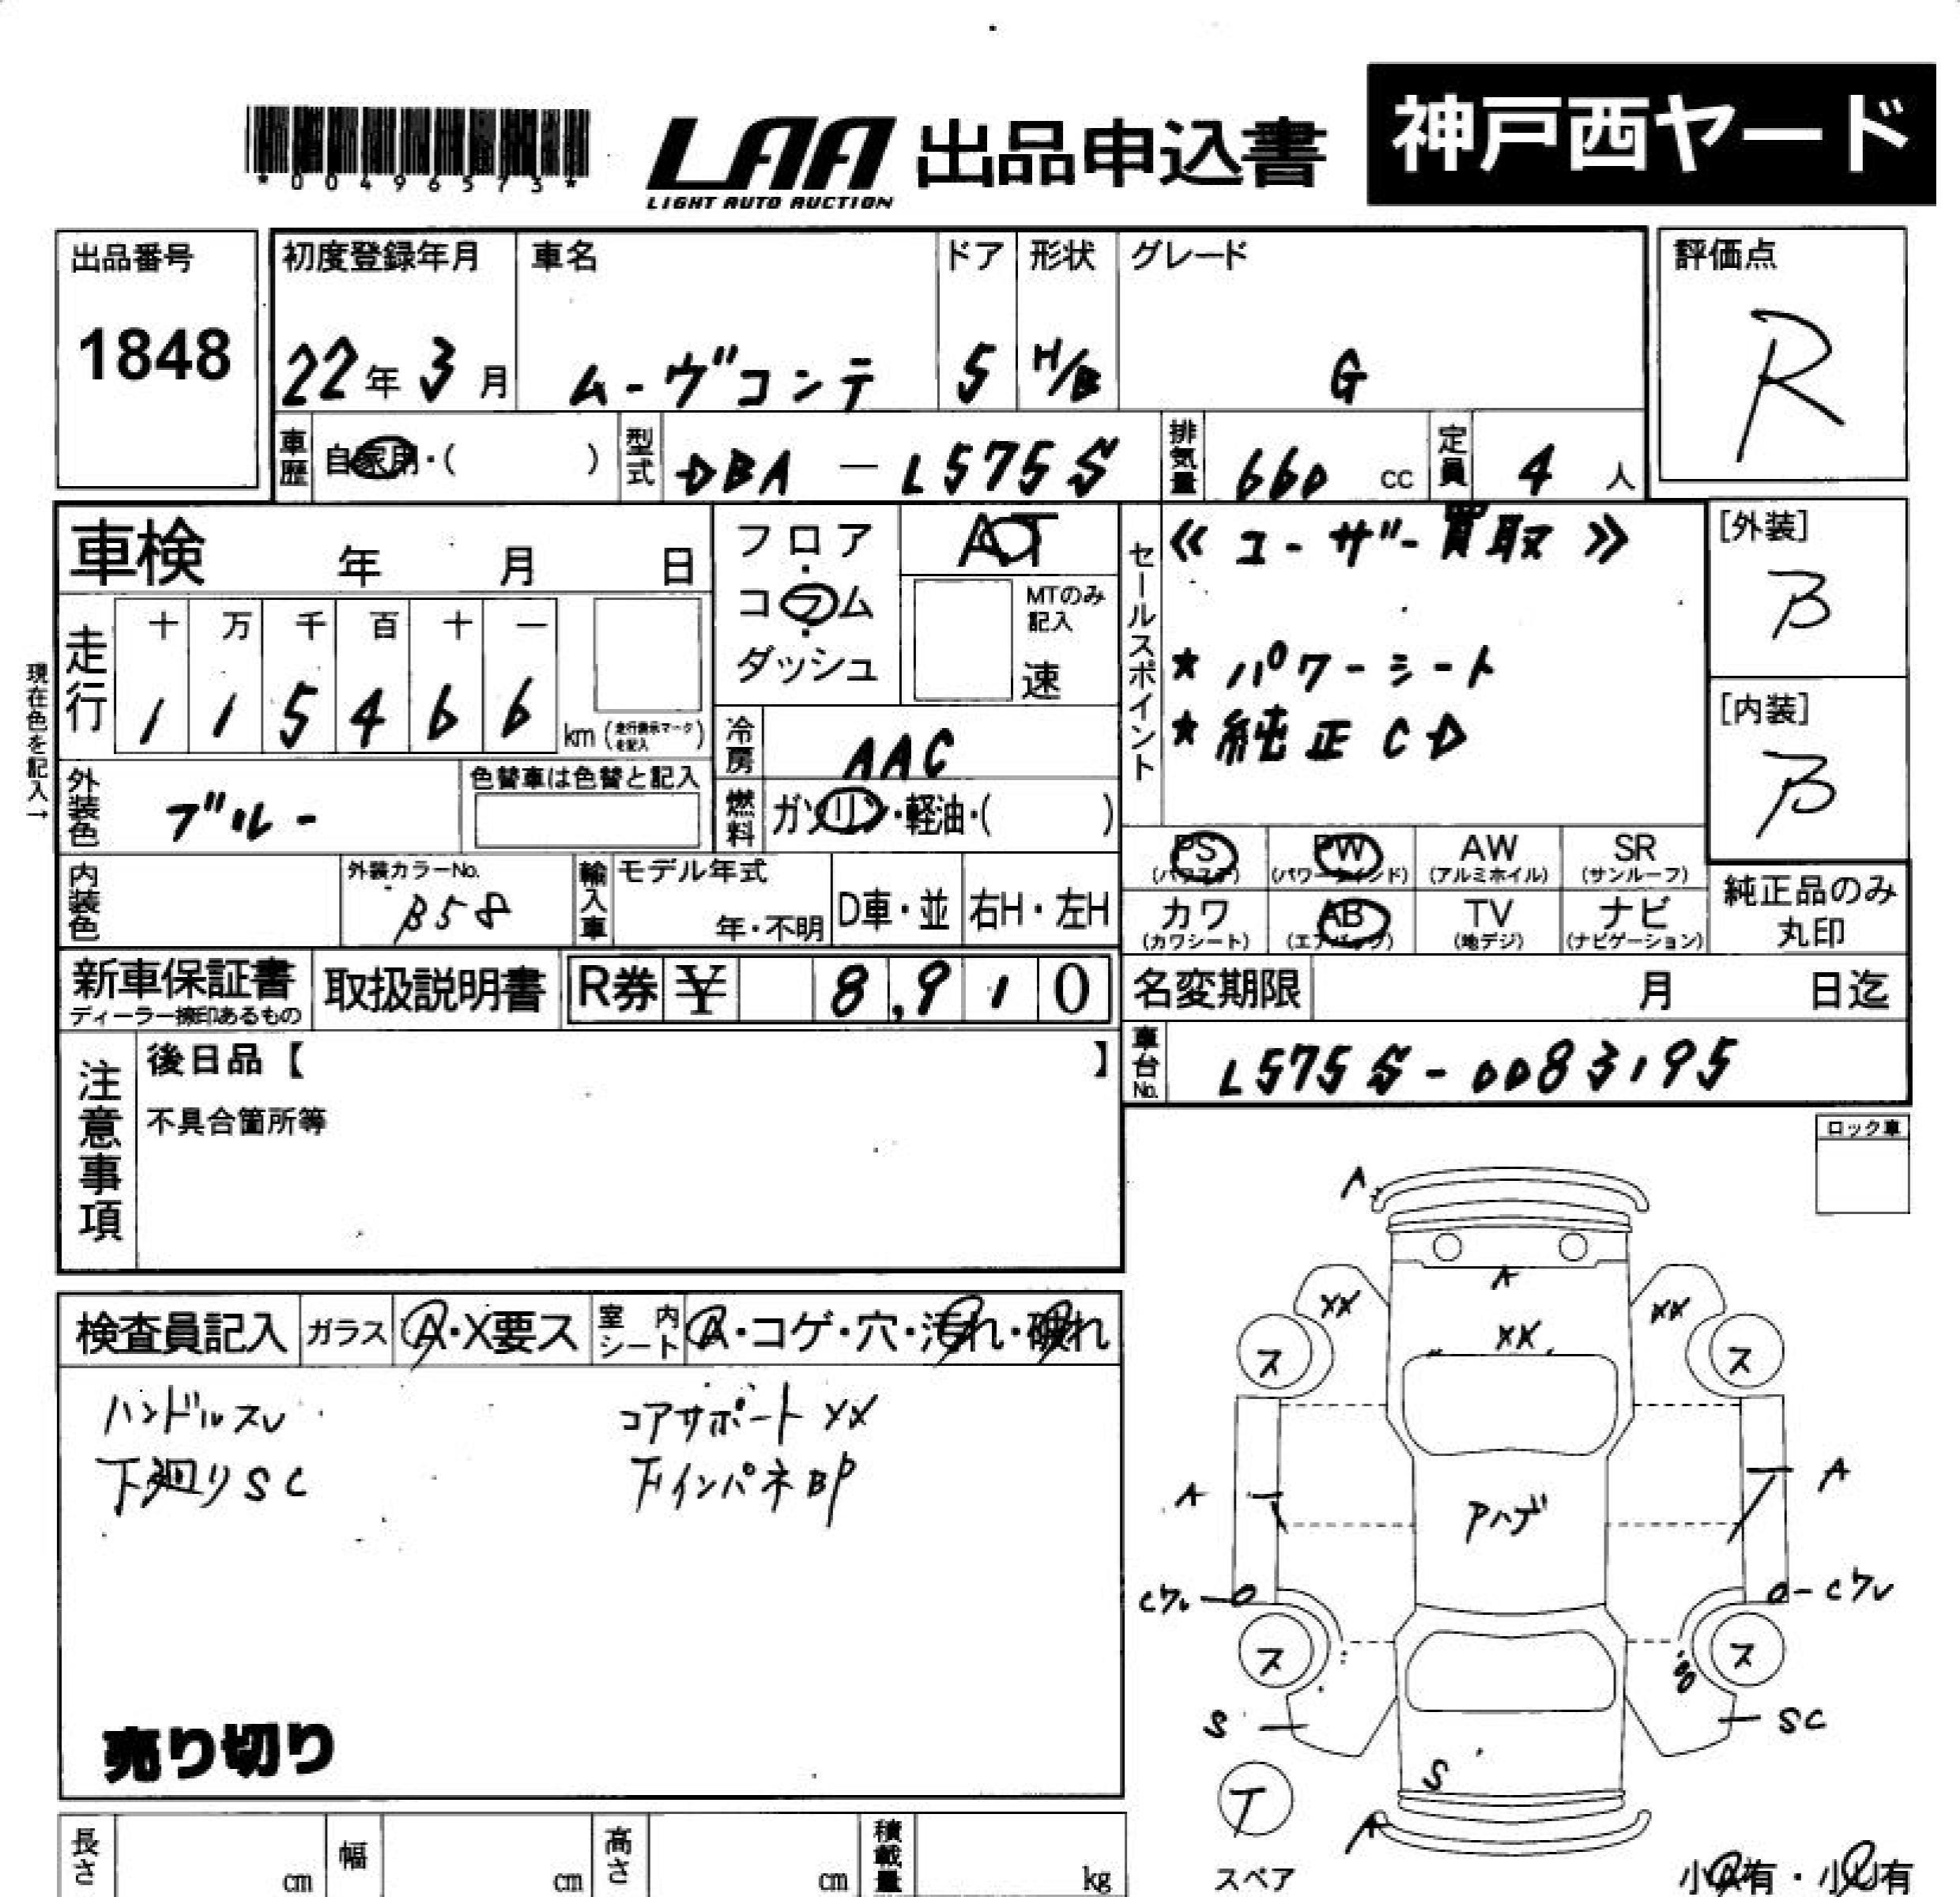 *00496573*
LAA 出品申込書
LIGHT AUTO AUCTION
神戸西ヤード
出品番号
1848
初度登録年月
22年3月
車名
ムーヴコンテ
ドア
5
形状
H/B
グレード
G
評価点
R
車歴 自家用・( )
型式 DBA - L575S
排気量 660 cc
定員 4 人
車検 年 月 日
フロア・コラム・ダッシュ
AT
MTのみ記入
速
セールスポイント
《ユーザー買取》
★パワーシート
★純正CD
[外装]
B
[内装]
B
現在色を記入→
走行
十 万 千 百 十 一
1 1 5 4 6 6 km (走行表示マークを記入)
冷房 AAC
外装色 ブルー
色替車は色替と記入
燃料 ガソリン・軽油・( )
PS (パワステ)
PW (パワーウインド)
AW (アルミホイル)
SR (サンルーフ)
カワ (カワシート)
AB (エアバッグ)
TV (地デジ)
ナビ (ナビゲーション)
純正品のみ丸印
内装色
外装カラーNo.
B58
輸入車 モデル年式
年・不明
D車・並 右H・左H
新車保証書
ディーラー捺印あるもの
取扱説明書
R券 ¥ 8,910
名変期限 月 日迄
車台No. L575S-0083195
注意事項
後日品【 】
不具合箇所等
ロック車
検査員記入 ガラス A・X要ス 室内シート A・コゲ・穴・汚れ・破れ
ハンドルスレ
下廻りSC
コアサポートXX
下インパネBP
売り切り
A
A
XX
XX
XX
ス
ス
A
A
Pハゲ
Cワレ
Cワレ
ス
ス
S
SC
S
T
A
スペア
小A有・小U有
長さ cm
幅 cm
高さ cm
積載量 kg